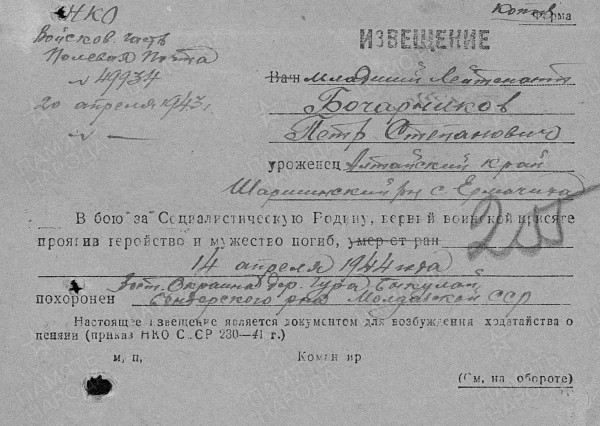 Копия
форма
НКО
Войсков. часть
Полевая Почта
№ 49934
20 апреля 1943 г.
№ —
ИЗВЕЩЕНИЕ
Ваш младший лейтенант
Бочарников
Петр Степанович
уроженец Алтайский край
рн с.
В бою за Социалистическую Родину, верный воинской присяге
проявив геройство и мужество погиб, умер от ран
255
14 апреля 1944 года
Вост. Окраина дер. Гура Быкулай
похоронен Бендерского рна Молдавской ССР
Настоящее извещение является документом для возбуждения ходатайства о
пенсии (приказ НКО СССР 230—41 г.)
м, п, Командир
(См, на обороте)